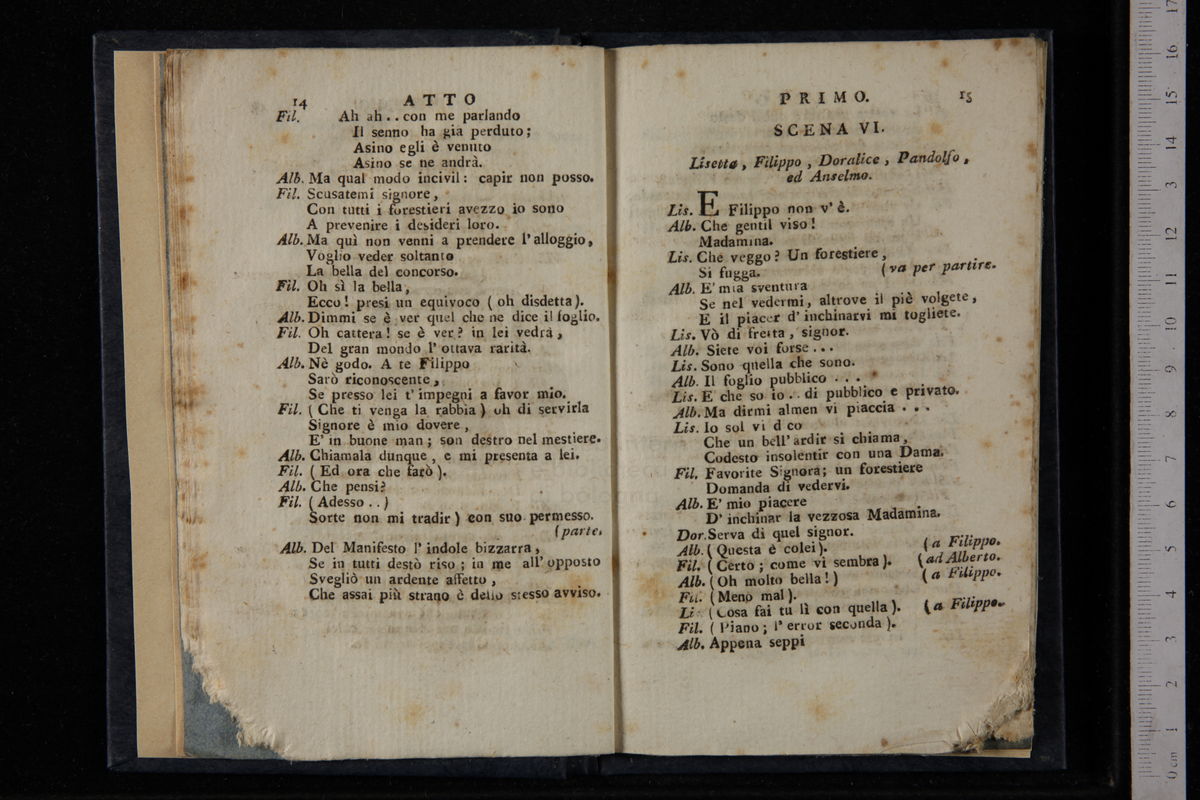 14 ATTO
Fil. Ah ah . . con me parlando
Il senno ha gia perduto;
Asino egli è venuto
Asino se ne andrà.
Alb. Ma qual modo incivil: capir non posso.
Fil. Scusatemi signore,
Con tutti i forestieri avezzo io sono
A prevenire i desideri loro.
Alb. Ma quì non venni a prendere l'alloggio,
Voglio veder soltanto
La bella del concorso.
Fil. Oh sì la bella,
Ecco! presi un equivoco ( oh disdetta ).
Alb. Dimmi se è ver quel che ne dice il foglio.
Fil. Oh cattera! se è ver? in lei vedrà,
Del gran mondo l'ottava rarità.
Alb. Nè godo. A te Filippo
Sarò riconoscente,
Se presso lei t'impegni a favor mio.
Fil. ( Che ti venga la rabbia ) oh di servirla
Signore è mio dovere,
E' in buone man; son destro nel mestiere.
Alb. Chiamala dunque, e mi presenta a lei.
Fil. ( Ed ora che farò ).
Alb. Che pensi?
Fil. ( Adesso . . )
Sorte non mi tradir ) con suo permesso.
(parte.
Alb. Del Manifesto l'indole bizzarra,
Se in tutti destò riso; in me all'opposto
Svegliò un ardente affetto,
Che assai più strano è dello stesso avviso.
PRIMO. 15
SCENA VI.
Lisetta, Filippo, Doralice, Pandolfo,
ed Anselmo.
Lis. E Filippo non v'è.
Alb. Che gentil viso!
Madamina.
Lis. Che veggo? Un forestiere,
Si fugga. (va per partire.
Alb. E' mia sventura
Se nel vedermi, altrove il piè volgete,
E il piacer d'inchinarvi mi togliete.
Lis. Vò di fretta, signor.
Alb. Siete voi forse . . .
Lis. Sono quella che sono.
Alb. Il foglio pubblico . . .
Lis. E che so io . . di pubblico e privato.
Alb. Ma dirmi almen vi piaccia . . .
Lis. Io sol vi d co
Che un bell'ardir si chiama,
Codesto insolentir con una Dama.
Fil. Favorite Signora; un forestiere
Domanda di vedervi.
Alb. E' mio piacere
D'inchinar la vezzosa Madamina.
Dor. Serva di quel signor.
Alb. ( Questa è colei ). (a Filippo.
Fil. ( Certo; come vi sembra ). (ad Alberto.
Alb. ( Oh molto bella! ) (a Filippo.
Fil. ( Meno mal ).
Li ( Cosa fai tu lì con quella ). (a Filippo.
Fil. ( Piano; l'error seconda ).
Alb. Appena seppi
17
16
15
14
13
12
11
10
9
8
7
6
5
4
3
2
1
0 cm